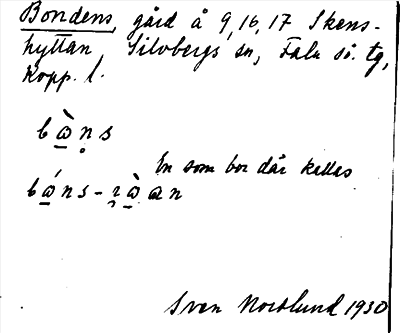 Bondens, gård å 9, 16, 17 Skens-
hyttan, Silvbergs sn, Falu sö. tg,
Kopp. l.
En som bor där kallas
Sven Norlund 1930